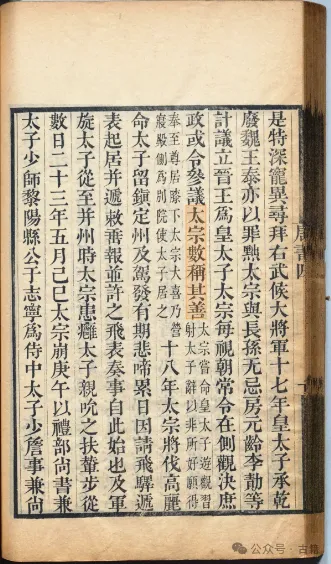 唐書四
是特深寵異尋拜右武候大將軍十七年皇太子承乾
廢魏王泰亦以罪黜太宗與長孫無忌房元齡李勣等
計議立晉王爲皇太子太宗每視朝常令在側觀決庶
政或令參議太宗數稱其善太宗嘗命皇太子遊觀習射太子辭以非所好願得
奉至尊居膝下太宗大喜乃營寢殿側爲別院使太子居之十八年太宗將伐高麗
命太子留鎮定州及駕發有期悲啼累日因請飛驛遞
表起居并遞敕垂報並許之飛表奏事自此始也及軍
旋太子從至并州時太宗患癰太子親吮之扶輦步從
數日二十三年五月己巳太宗崩庚午以禮部尚書兼
太子少師黎陽縣公于志寧爲侍中太子少詹事兼尚
公众号·古籍